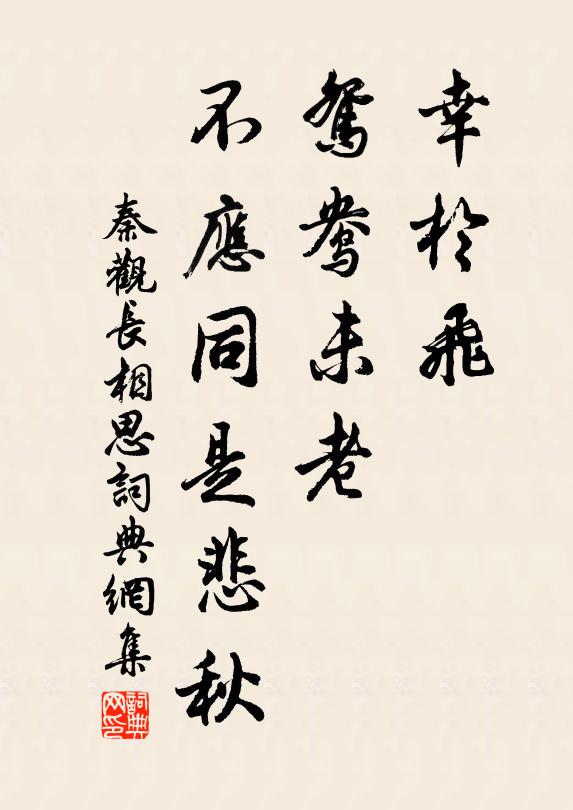 幸於飛
鴛鴦未老
不應同是悲秋
秦觀長相思詞典網集
詞典网印